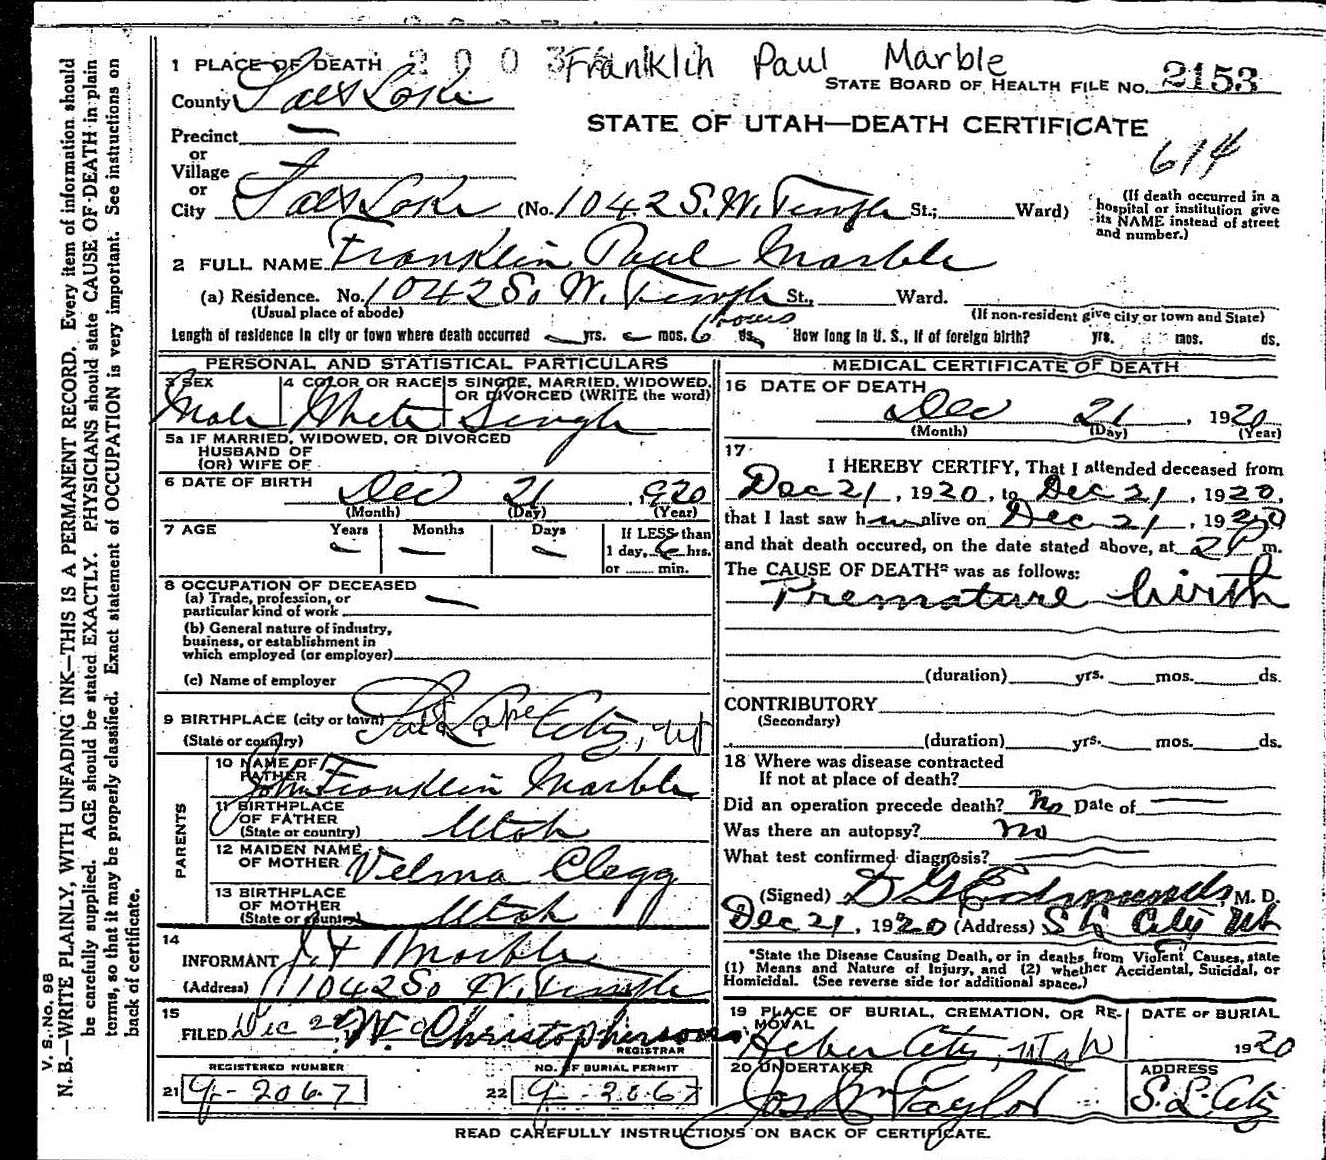 2003 Franklin Paul Marble
1 PLACE OF DEATH
STATE BOARD OF HEALTH FILE NO. 2153
County Salt Lake
STATE OF UTAH—DEATH CERTIFICATE
614
Precinct —
or
Village
or
City Salt Lake (No. 1042 S. W. Temple St.; Ward)
(If death occurred in a hospital or institution give its NAME instead of street and number.)
2 FULL NAME Franklin Paul Marble
(a) Residence. No. 1042 So W. Temple St., Ward.
(Usual place of abode) (If non-resident give city or town and State)
Length of residence in city or town where death occurred — yrs. — mos. 6 hours ds. How long in U. S., if of foreign birth? yrs. mos. ds.
PERSONAL AND STATISTICAL PARTICULARS
3 SEX Male
4 COLOR OR RACE White
5 SINGLE, MARRIED, WIDOWED, OR DIVORCED (WRITE the word) Single
5a IF MARRIED, WIDOWED, OR DIVORCED
HUSBAND OF
(OR) WIFE OF
6 DATE OF BIRTH Dec 21, 1920
(Month) (Day) (Year)
7 AGE Years — Months — Days — If LESS than 1 day, 6 hrs. or ...... min.
8 OCCUPATION OF DECEASED
(a) Trade, profession, or particular kind of work —
(b) General nature of industry, business, or establishment in which employed (or employer)
(c) Name of employer
9 BIRTHPLACE (city or town) Salt Lake City, Ut
(State or country)
PARENTS
10 NAME OF FATHER John Franklin Marble
11 BIRTHPLACE OF FATHER (State or country) Utah
12 MAIDEN NAME OF MOTHER Velma Clegg
13 BIRTHPLACE OF MOTHER (State or country) Utah
14
INFORMANT J. F. Marble
(Address) 1042 So W. Temple
15
FILED Dec 22 W. Christophersons
REGISTRAR
REGISTERED NUMBER NO. OF BURIAL PERMIT
21 9-2067 22 9-2067
MEDICAL CERTIFICATE OF DEATH
16 DATE OF DEATH
Dec 21, 1920
(Month) (Day) (Year)
17
I HEREBY CERTIFY, That I attended deceased from
Dec 21, 1920, to Dec 21, 1920,
that I last saw him alive on Dec 21, 1920
and that death occured, on the date stated above, at 2 P m.
The CAUSE OF DEATH* was as follows:
Premature birth
(duration) yrs. mos. ds.
CONTRIBUTORY
(Secondary)
(duration) yrs. mos. ds.
18 Where was disease contracted
If not at place of death?
Did an operation precede death? No Date of —
Was there an autopsy? no
What test confirmed diagnosis? —
(Signed) D G Edmunds M. D.
Dec 21, 1920 (Address) S L City Ut
*State the Disease Causing Death, or in deaths from Violent Causes, state
(1) Means and Nature of Injury, and (2) whether Accidental, Suicidal, or
Homicidal. (See reverse side for additional space.)
19 PLACE OF BURIAL, CREMATION, OR REMOVAL
Heber City, Utah
DATE OF BURIAL
1920
20 UNDERTAKER
Jos Wm Taylor
ADDRESS
S. L. City
READ CAREFULLY INSTRUCTIONS ON BACK OF CERTIFICATE.
V. S. No. 88
N. B.—WRITE PLAINLY, WITH UNFADING INK—THIS IS A PERMANENT RECORD. Every item of information should
be carefully supplied. AGE should be stated EXACTLY. PHYSICIANS should state CAUSE OF DEATH in plain
terms, so that it may be properly classified. Exact statement of OCCUPATION is very important. See instructions on
back of certificate.